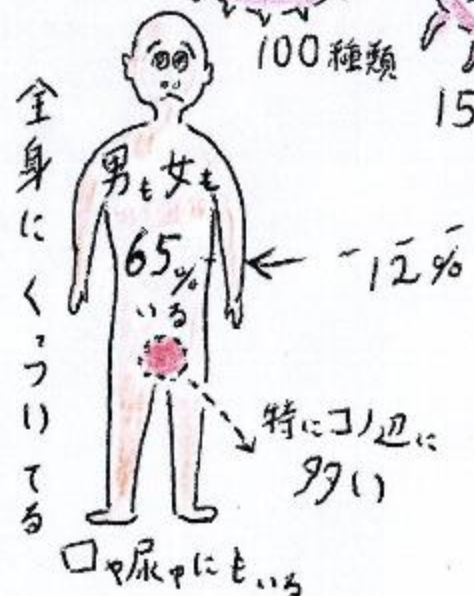 100種類
15
全身にくっついてる
男も女も
65%
いる
12%
特にコノ辺に
多い
口や尿中にもいる